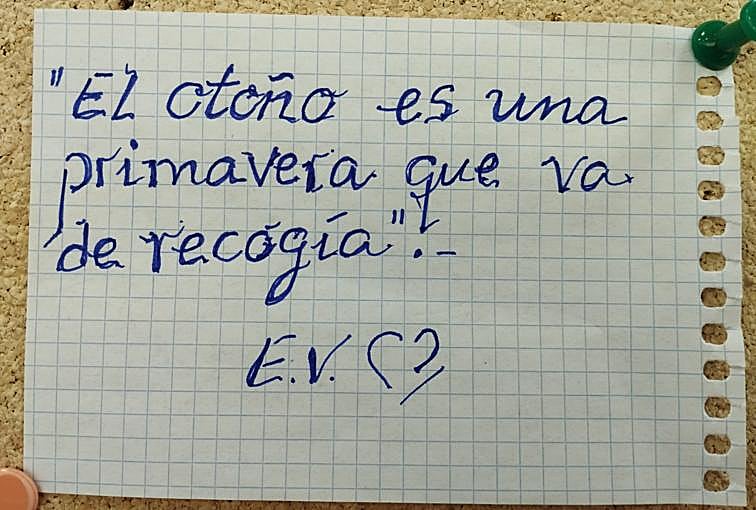 "El otoño es una
primavera que va
de recogía".-
E.V.